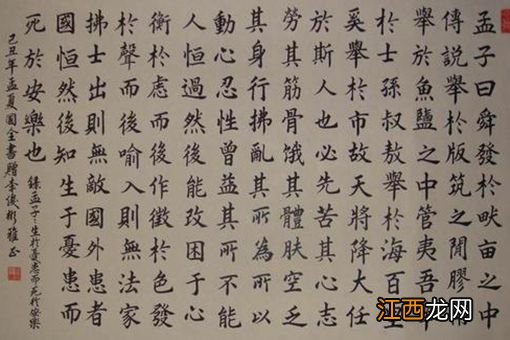 孟子曰舜發於畎亩之中
傳說舉於版筑之間膠
舉於魚鹽之中管夷吾
於士孫叔敖舉於海百
奚舉於市故天將降大任
於斯人也必先苦其心志
勞其筋骨饿其體膚空乏
其身行拂亂其所為所以
動心忍性曾益其所不能
人恒過然後能改困于心
衡於慮而後作徵於色發
於聲而後喻入則無法家
拂士出則無敵國外患者
國恒然後知生于憂患而
死於安樂也
錄孟子：生於憂患而死於安樂
己丑年孟夏國全書贈李俊彬雅正
江西龙网